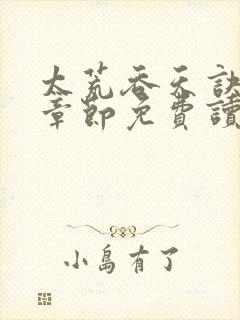 太荒吞天訣
章節免費讀
小島有了